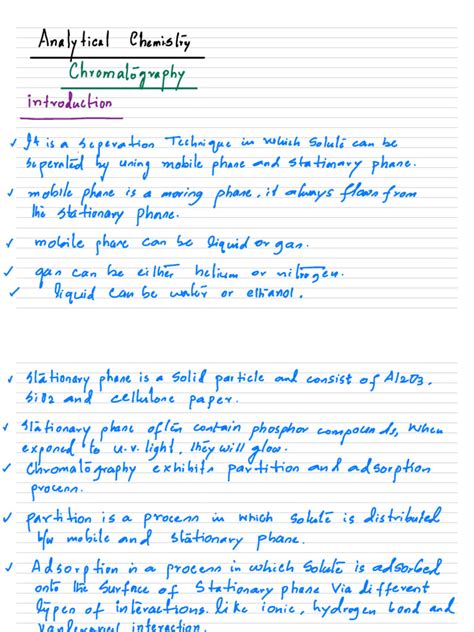 Analytical Chemistry
Chromatography
introduction
✓ It is a seperation Technique in which solute can be
seperated by using mobile phase and stationary phase.
✓ mobile phase is a moving phase, it always flows from
the stationary phase.
✓ mobile phase can be liquid or gas.
✓ gas can be either helium or nitrogen.
✓ liquid can be water or ethanol.
✓ Stationary phase is a solid particle and consist of Al2O3,
SiO2 and cellulose paper.
✓ Stationary phase often contain phosphor compounds, when
exposed to u.v. light, they will glow.
✓ Chromatography exhibits partition and adsorption
process.
✓ partition is a process in which solute is distributed
b/w mobile and stationary phase.
✓ Adsorption is a process in which solute is adsorbed
onto the surface of stationary phase via different
types of interactions. like ionic, hydrogen bond and
vanderwaal interaction.